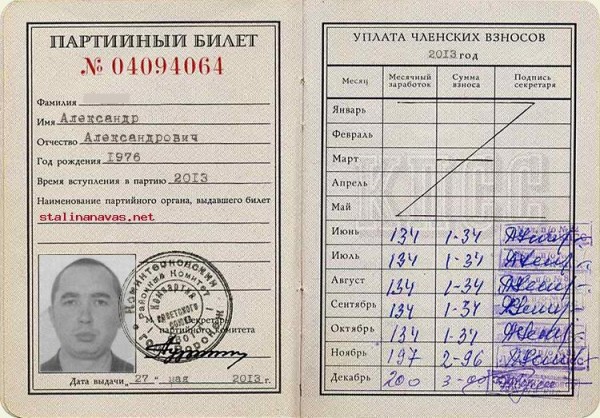 ПАРТИЙНЫЙ БИЛЕТ
№ 04094064
Фамилия
Имя Александр
Отчество Александрович
Год рождения 1976
Время вступления в партию 2013
Наименование партийного органа, выдавшего билет
stalinanavas.net
Секретарь
партийного комитета
Дата выдачи „27“ мая 2013 г.
УПЛАТА ЧЛЕНСКИХ ВЗНОСОВ
2013 год
Месяц Месячный заработок Сумма взноса Подпись секретаря
Январь
Февраль
Март
Апрель
Май
КПСС
Июнь 134 1-34
Июль 134 1-34
Август 134 1-34
Сентябрь 134 1-34
Октябрь 134 1-34
Ноябрь 197 2-96
Декабрь 200 3-00